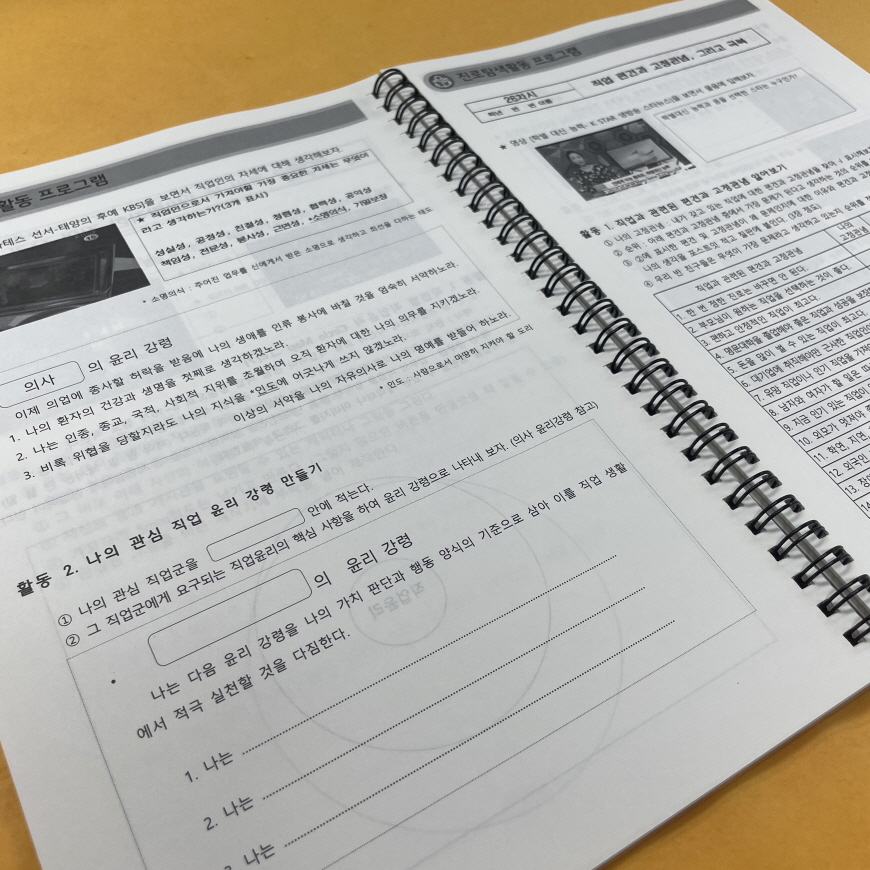 활동 프로그램
테스 선서-태양의 후예 KBS)을 보면서 직업인의 자세에 대해 생각해보자
★ 직업인으로서 가져야할 가장 중요한 자세는 무엇이
라고 생각하는가?(3개 표시)
성실성, 공정성, 친절성, 청렴성, 협력성, 공익성
책임성, 전문성, 봉사성, 근면성, *소명의식, 기밀보장
* 소명의식 : 주어진 업무를 신에게서 받은 소명으로 생각하고 최선을 다하는 태도
의사 의 윤리 강령
이제 의업에 종사할 허락을 받음에 나의 생애를 인류 봉사에 바칠 것을 엄숙히 서약하노라.
1. 나의 환자의 건강과 생명을 첫째로 생각하겠노라.
2. 나는 인종, 종교, 국적, 사회적 지위를 초월하여 오직 환자에 대한 나의 의무를 지키겠노라.
3. 비록 위협을 당할지라도 나의 지식을 *인도에 어긋나게 쓰지 않겠노라.
이상의 서약을 나의 자유의사로 나의 명예를 받들어 하노라.
* 인도 : 사람으로서 마땅히 지켜야 할 도리
활동 2. 나의 관심 직업 윤리 강령 만들기
① 나의 관심 직업군을 안에 적는다.
② 그 직업군에게 요구되는 직업윤리의 핵심 사항을 하여 윤리 강령으로 나타내 보자. (의사 윤리강령 참고)
의 윤리 강령
나는 다음 윤리 강령을 나의 가치 판단과 행동 양식의 기준으로 삼아 이를 직업 생활
에서 적극 실천할 것을 다짐한다.
1. 나는
2. 나는
3. 나는
진로탐색활동 프로그램
26차시
직업 편견과 고정관념, 그리고 극복
학년 반 번 이름
★ 영상 (학벌 대신 능력- K STAR 생방송 스타뉴스)을 보면서 물음에 답해보자
학벌대신 능력과 꿈을 선택한 스타는 누구인가?
활동 1. 직업과 관련된 편견과 고정관념 알아보기
직업과 관련된 편견과 고정관념
나의
고정관념
1. 한 번 정한 진로는 바꾸면 안 된다.
2. 부모님이 원하는 직업을 선택하는 것이 좋다.
3. 편하고 안정적인 직업이 최고다.
4. 명문대학을 졸업해야 좋은 직업과 성공을 보장
5. 돈을 많이 벌 수 있는 직업이 최고다.
6. 대기업에 취직해야만
7. 유망 직업이나 인기 직업을
8. 남자와 여자가 할 일은
9. 지금 인기 있는 직업이
10. 외모가 멋져야
11. 학연, 지연,
12. 외국인
13.
14